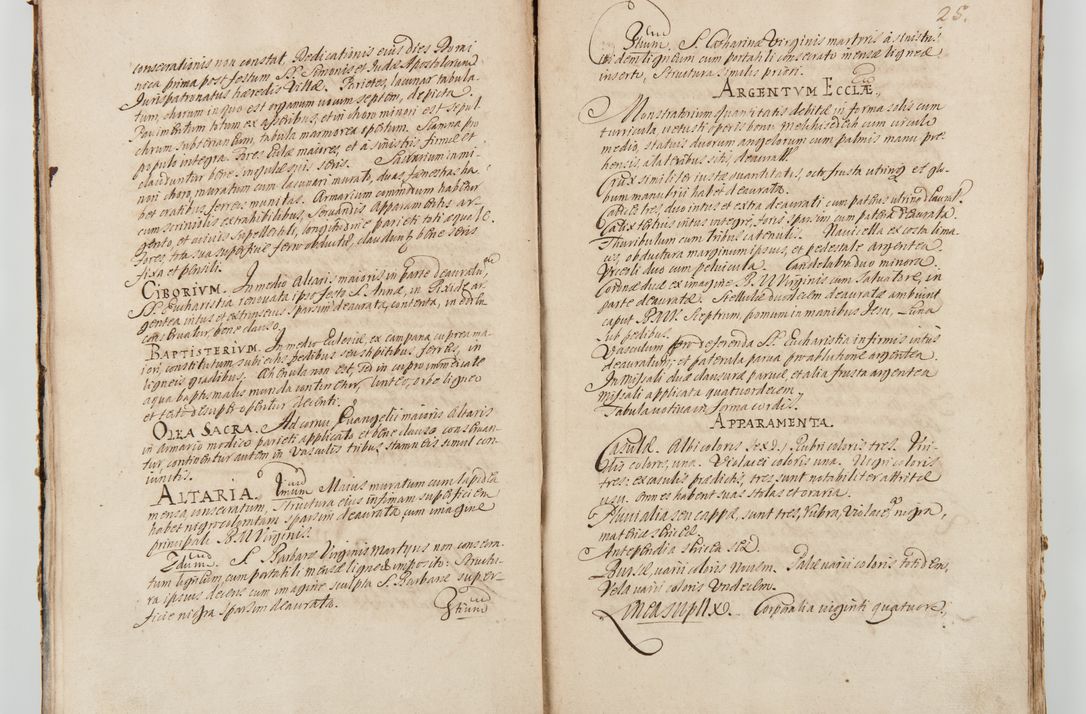 consecrationis non constat, Dedicationis eius dies Domi
nica prima post festum SS. Simonis et Judæ Apostolorum
Jurispatronatus hæredis Villæ. Parietes, lacunar tabula
tum, chorum in quo est organum vocum septem, depicta.
Pavimentum totum ex asseribus, et in choro minori est sepul
chrum subterraneum, tabula marmorea opertum. Summa pro
populo integra. Fores Ecclæ maiores, et à sinistris firmæ et
clauduntur bene singulæ suis seris. Sacrarium in mi
nori choro, muratum cum lacunari murato, duas fenestras ha
bet cratibus ferreis munitas. Armarium commodum habetur
cum scriniolis extrahilibus, servandis Apparamentis ar
gento, et minis supellectili, longitudine parieti toti æquale.
Fores, tria sua superficie ferro obductæ, clauduntur bene seris
fixa et pensili.
CIBORIVM. In medio Altaris maioris in parte deauratum,
SS. Eucharistia renovata pro festo S. Annæ, in Pixide ar
gentea intus et extrinsecus sparsim deaurata, contenta, in eodem
conservatur bene clauso.
BAPTISTERIVM. In medio Ecclesiæ, ex campana cuprea ma
iori, constitutum subiectis pedibus seu stipitibus ferreis, in
ligneis gradibus. Ahenula non est, sed in cupro immediate
aqua baptismalis munda continetur, linteo, orbe ligneo
et tecto desuper operitur decenti.
OLEA SACRA. Ad cornu Evangelii maioris Altaris
in armario modico parieti applicato et bene clauso conservan
tur, continentur autem in vasculis tribus stanneis simul con
iunctis.
ALTARIA. Primum Maius muratum cum lapidea
mensa consecratum, Structura eius infimam superficiem
habet nigro colore tam sparsim deaurata, cum imagine
principali B. M. Virginis.
2dum. S. Barbaræ Virginis Martyris non consecra
tum ligneum, cum portatili mensæ ligneæ imposito. Structu
ra ipsius decens cum imagine sculpta S. Barbaræ super
ficie nigra sparsim deaurata.
3tium
25.
3tium. S. Catharinæ Virginis martyris à sinistris
itidem ligneum cum portatili consecrato mensæ ligneæ
inserto, Structura similis priori.
ARGENTVM ECCLÆ.
Monstratorium quantitatis debitæ in forma solis cum
turricula, vetusti operis boni, Melchisedech cum circulo
medio, statuis duorum angelorum cum palmis manu pre
hensis à lateribus sitis deauratum.
Crux similiter iustæ quantitatis, octo frusta utrinque et glo
bum manubrii habet deaurata.
Calices tres, duo intus et extra deaurati cum patenis utrinque deaurat.
Calix tertius intus integre, foris sparsim cum patena deaurata.
Thuribulum cum tribus catenulis. Navicella ex costa lima
cis, obductura marginum ipsius, et pedestale argentea.
Urceoli duo cum pelvicula. Candelabra duo minora.
Coronæ duæ ex imagine B. M. Virginis cum Salvatore, in
parte deauratæ. Stellulæ duodecim deauratæ ambiunt
caput B. M. V. Sceptrum, pomum in manibus Jesu, Luna
sub pedibus.
Vasculum pro referenda SS. Eucharistia infirmis intus
deauratum, et paterula parva pro ablutione argentea.
In Missali duæ clausuræ parvæ, et alia frusta argentea
missali applicata quatuordecim,
Tabula votiva in forma cordis.
APPARAMENTA.
Casulæ. Albi coloris sex D. Rubri coloris tres. Viri
dis coloris, una. Violacei coloris una. Nigri coloris
tres: ex casulis prædictis, tres sunt notabiliter attritæ
usu. Omnes habent suas stolas et oraria.
Pluvialia seu cappæ, sunt tres, rubra, violacea, nigra,
materia sericea.
Antependia sericea sex.
Bursæ varii coloris novem. Pallæ varii coloris totidem,
Vela varii coloris Undecim.
Linea suppllex. Corporalia viginti quatuor.